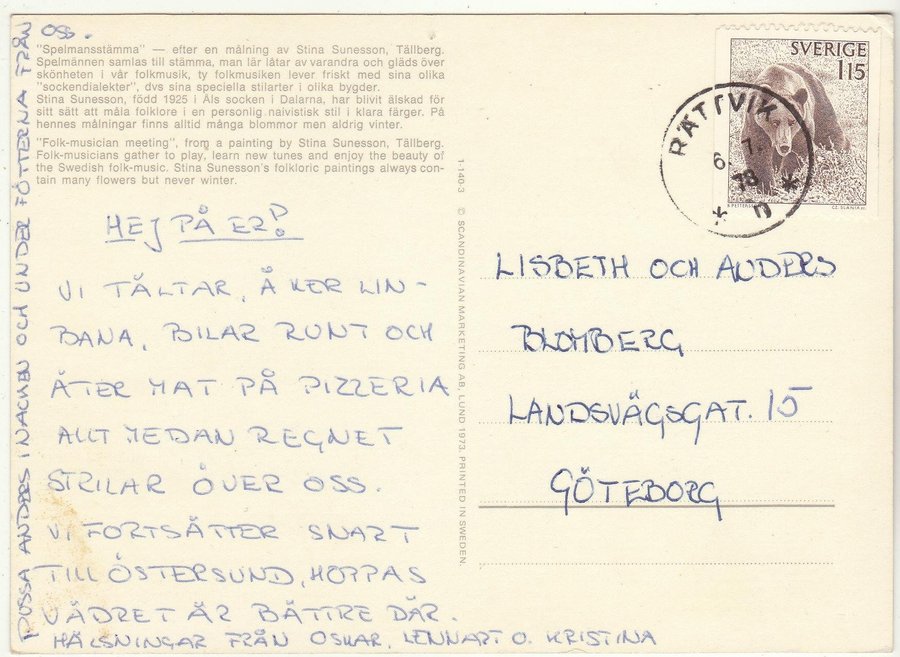 "Spelmansstämma" — efter en målning av Stina Sunesson, Tällberg.
Spelmännen samlas till stämma, man lär låtar av varandra och gläds över
skönheten i vår folkmusik, ty folkmusiken lever friskt med sina olika
"sockendialekter", dvs sina speciella stilarter i olika bygder.
Stina Sunesson, född 1925 i Åls socken i Dalarna, har blivit älskad för
sitt sätt att måla folklore i en personlig naivistisk stil i klara färger. På
hennes målningar finns alltid många blommor men aldrig vinter.
"Folk-musician meeting", from a painting by Stina Sunesson, Tällberg.
Folk-musicians gather to play, learn new tunes and enjoy the beauty of
the Swedish folk-music. Stina Sunesson's folkloric paintings always con-
tain many flowers but never winter.
HEJ PÅ ER!
VI TÄLTAR, ÅKER LIN-
BANA, BILAR RUNT OCH
ÄTER MAT PÅ PIZZERIA
ALLT MEDAN REGNET
STRILAR ÖVER OSS.
VI FORTSÄTTER SNART
TILL ÖSTERSUND, HOPPAS
VÄDRET ÄR BÄTTRE DÄR.
HÄLSNINGAR FRÅN OSKAR, LENNART O. KRISTINA
PUSSA ANDERS I NACKEN OCH UNDER FÖTTERNA FRÅN
OSS.
1140-3 © SCANDINAVIAN MARKETING AB, LUND 1973. PRINTED IN SWEDEN.
SVERIGE
115
RÄTTVIK
6. 7.
78
* n *
LISBETH OCH ANDERS
BLOMBERG
LANDSVÄGSGAT. 15
GÖTEBORG